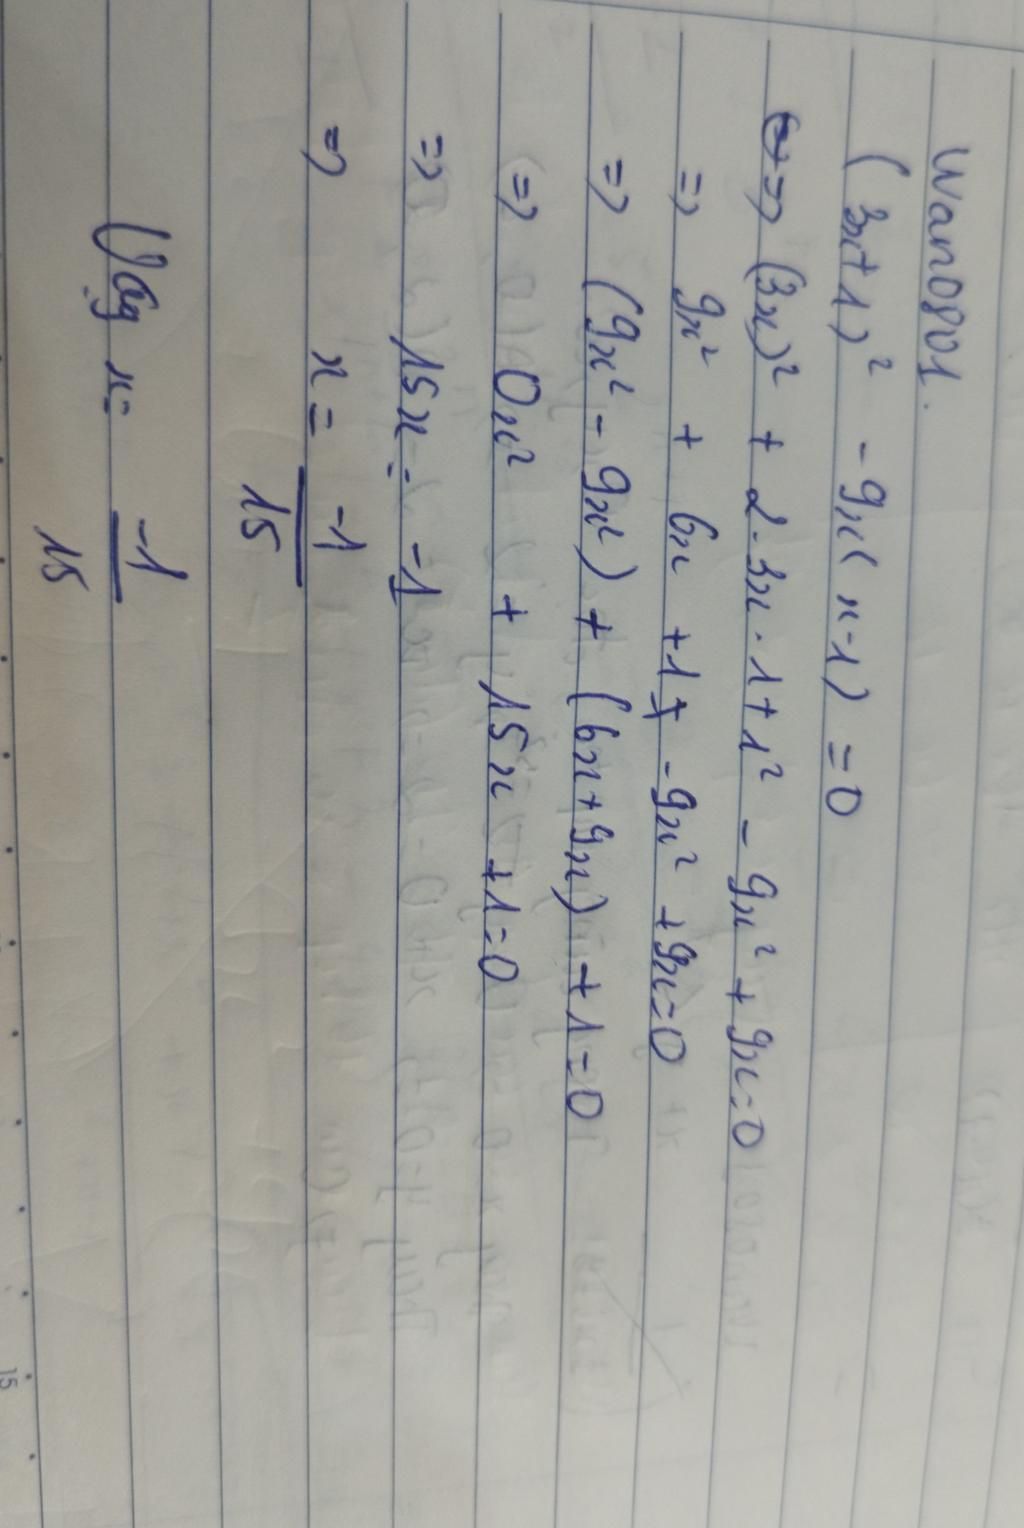 Wano801.
(3x+1)² - 9x(x-1) = 0
=> (3x)² + 2.3x.1+1² - 9x² + 9x=0
=> 9x² + 6x +1 -9x² +9x=0
=> (9x² - 9x²) + (6x+9x) +1=0
=> 0x² + 15x +1=0
=> 15x = -1
=> x = -1/15
Vậy x= -1/15
15